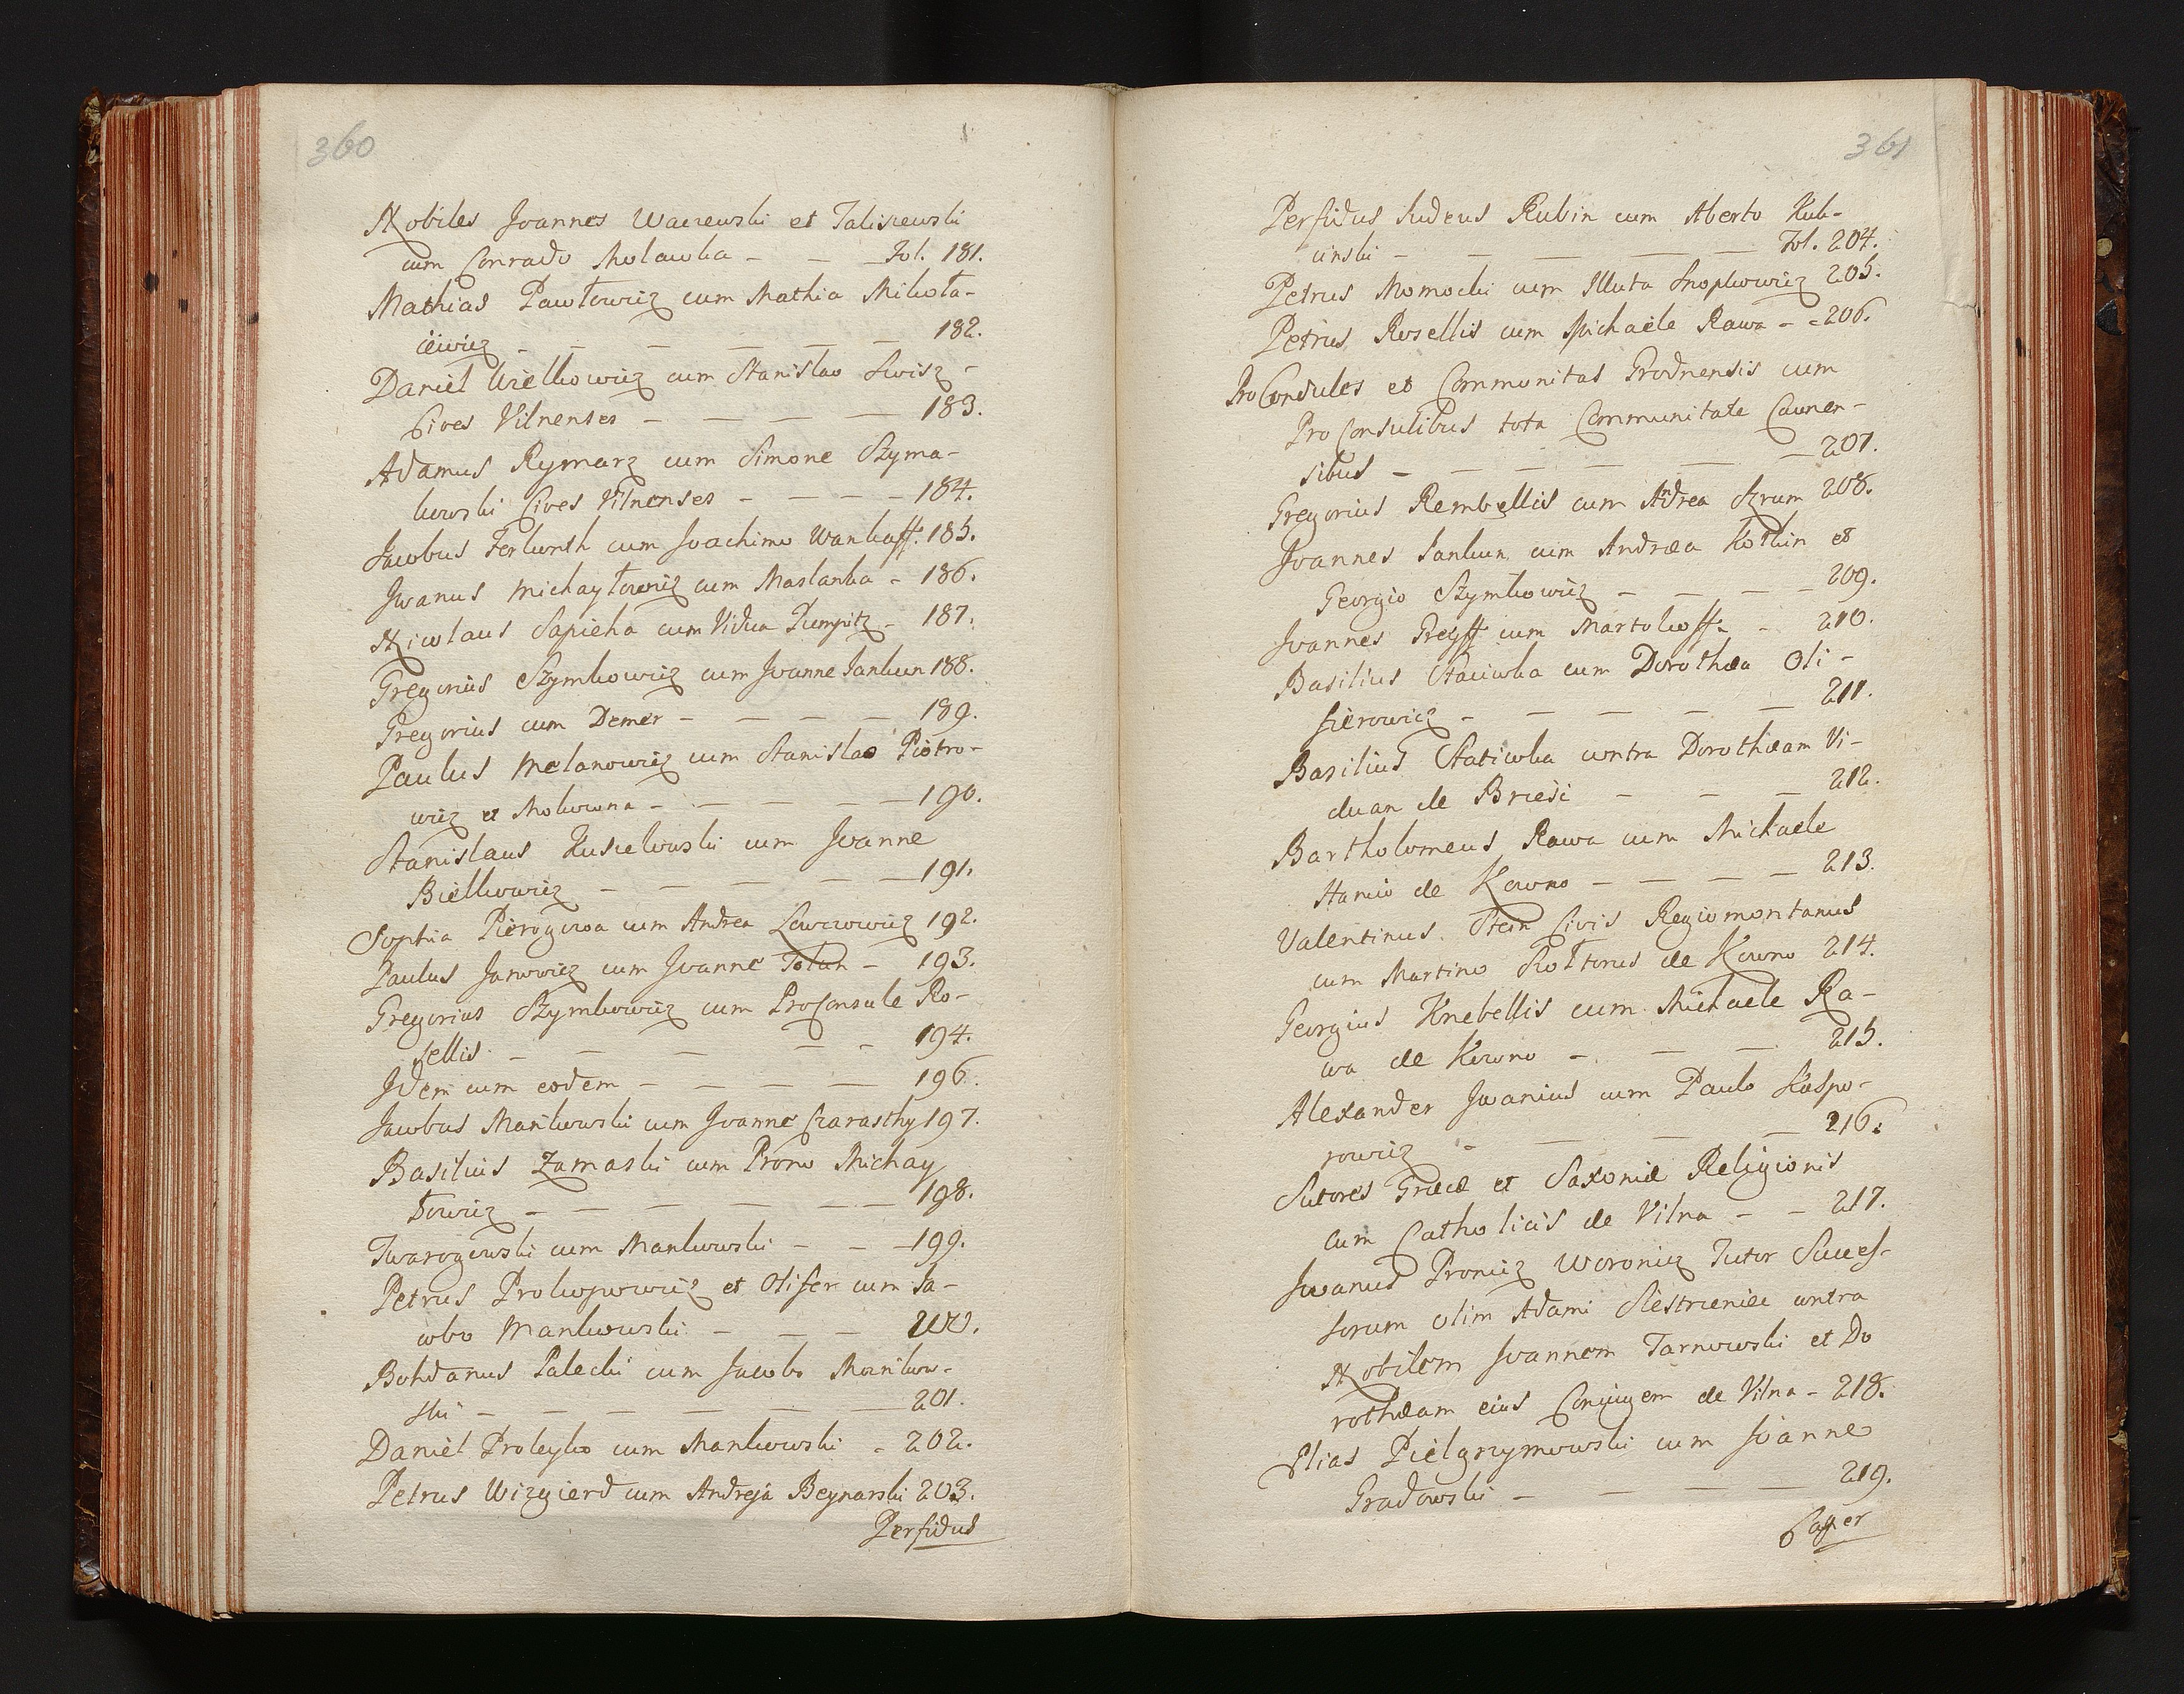 360
Nobiles Joannes Waczewski et Taliszewski
cum Conrado Molawka - - - Fol. 181.
Mathias Pawłowicz cum Mathia Mikoła-
iewicz - - - - - - 182.
Daniel Wielkowicz cum Stanislao Swisz -
Cives Vilnenses - - - - 183.
Adamus Rymarz cum Simone Szyma-
kowski Cives Vilnenses - - - - 184.
Jacobus Ferkursth cum Joachimo Wankaff. 185.
Jwanus Michayłowicz cum Maslanka - 186.
Nicolaus Sapieha cum Vidua Pumpitz - 187.
Gregorius Szymkowicz cum Joanne Jankun 188.
Gregorius cum Demer - - - - 189.
Paulus Melanowicz cum Stanislao Piotro-
wicz et Mokowna - - - - - 190.
Stanislaus Kuscelowski cum Joanne
Bielkowicz - - - - - 191.
Sophia Pierogowa cum Andrea Lawrowicz 192.
Paulus Janowicz cum Joanne Totun - 193.
Gregorius Szymkowicz cum ProConsule Ro-
sellis - - - - - 194.
Jdem cum eodem - - - - 196.
Jacobus Mankowski cum Joanne Czarasthy 197.
Basilius Zamaski cum Prono Michay
łowicz - - - - - - 198.
Twarogowski cum Mankowski - - - 199.
Petrus Prokopowicz et Olifer cum Ja-
cobo Mankowski - - - 200.
Bohdanus Palecki cum Jacobo Mankow-
ski - - - - - - 201.
Daniel Proleyko cum Mankowski - 202.
Petrus Wizgierd cum Andreja Beynarski 203.
Perfidus
361
Perfidus Judeus Rubin cum Aberto Kul-
cinski - - - - - Fol. 204.
Petrus Momocki cum Illuta Snopkowicz 205.
Petrus Rosellis cum Michaele Rawa - - 206.
ProConsules et Communitas Grodnensis cum
ProConsulibus tota Communitate Caunen-
sibus - - - - - - 207.
Gregorius Rembellis cum Andrea Szrum 208.
Joannes Jankun cum Andræa Kotkin et
Georgio Szymkowicz - - - - 209.
Joannes Greyff cum Martokoff - - 210.
Basilius Staciwka cum Dorothæa Oli-
fierowicz - - - - - - 211.
Basilius Staciwka contra Dorothæam Vi-
duam de Brzesi - - - 212.
Bartholomeus Rawa cum Michaele
Hanuo de Kowno - - - - 213.
Valentinus Stein Civis Regiomontanus
cum Martino Szołtorus de Kowno 214.
Georgius Knebellis cum Michaele Ra-
wa de Kowno - - - 215.
Alexander Jwanius cum Paulo Kaspo-
rowicz - - - - 216.
Sutores Græcæ et Saxoniæ Religionis
cum Catholicis de Vilna - - 217.
Jwanus Pronicz Woronicz Tutor Succes-
sorum olim Adami Siestrzeniec contra
Nobilem Joannem Tarnowski et Do
rothæam eius Conjugem de Vilna - 218.
Elias Pielgrzymowski cum Joanne
Gradowski - - - - 219.